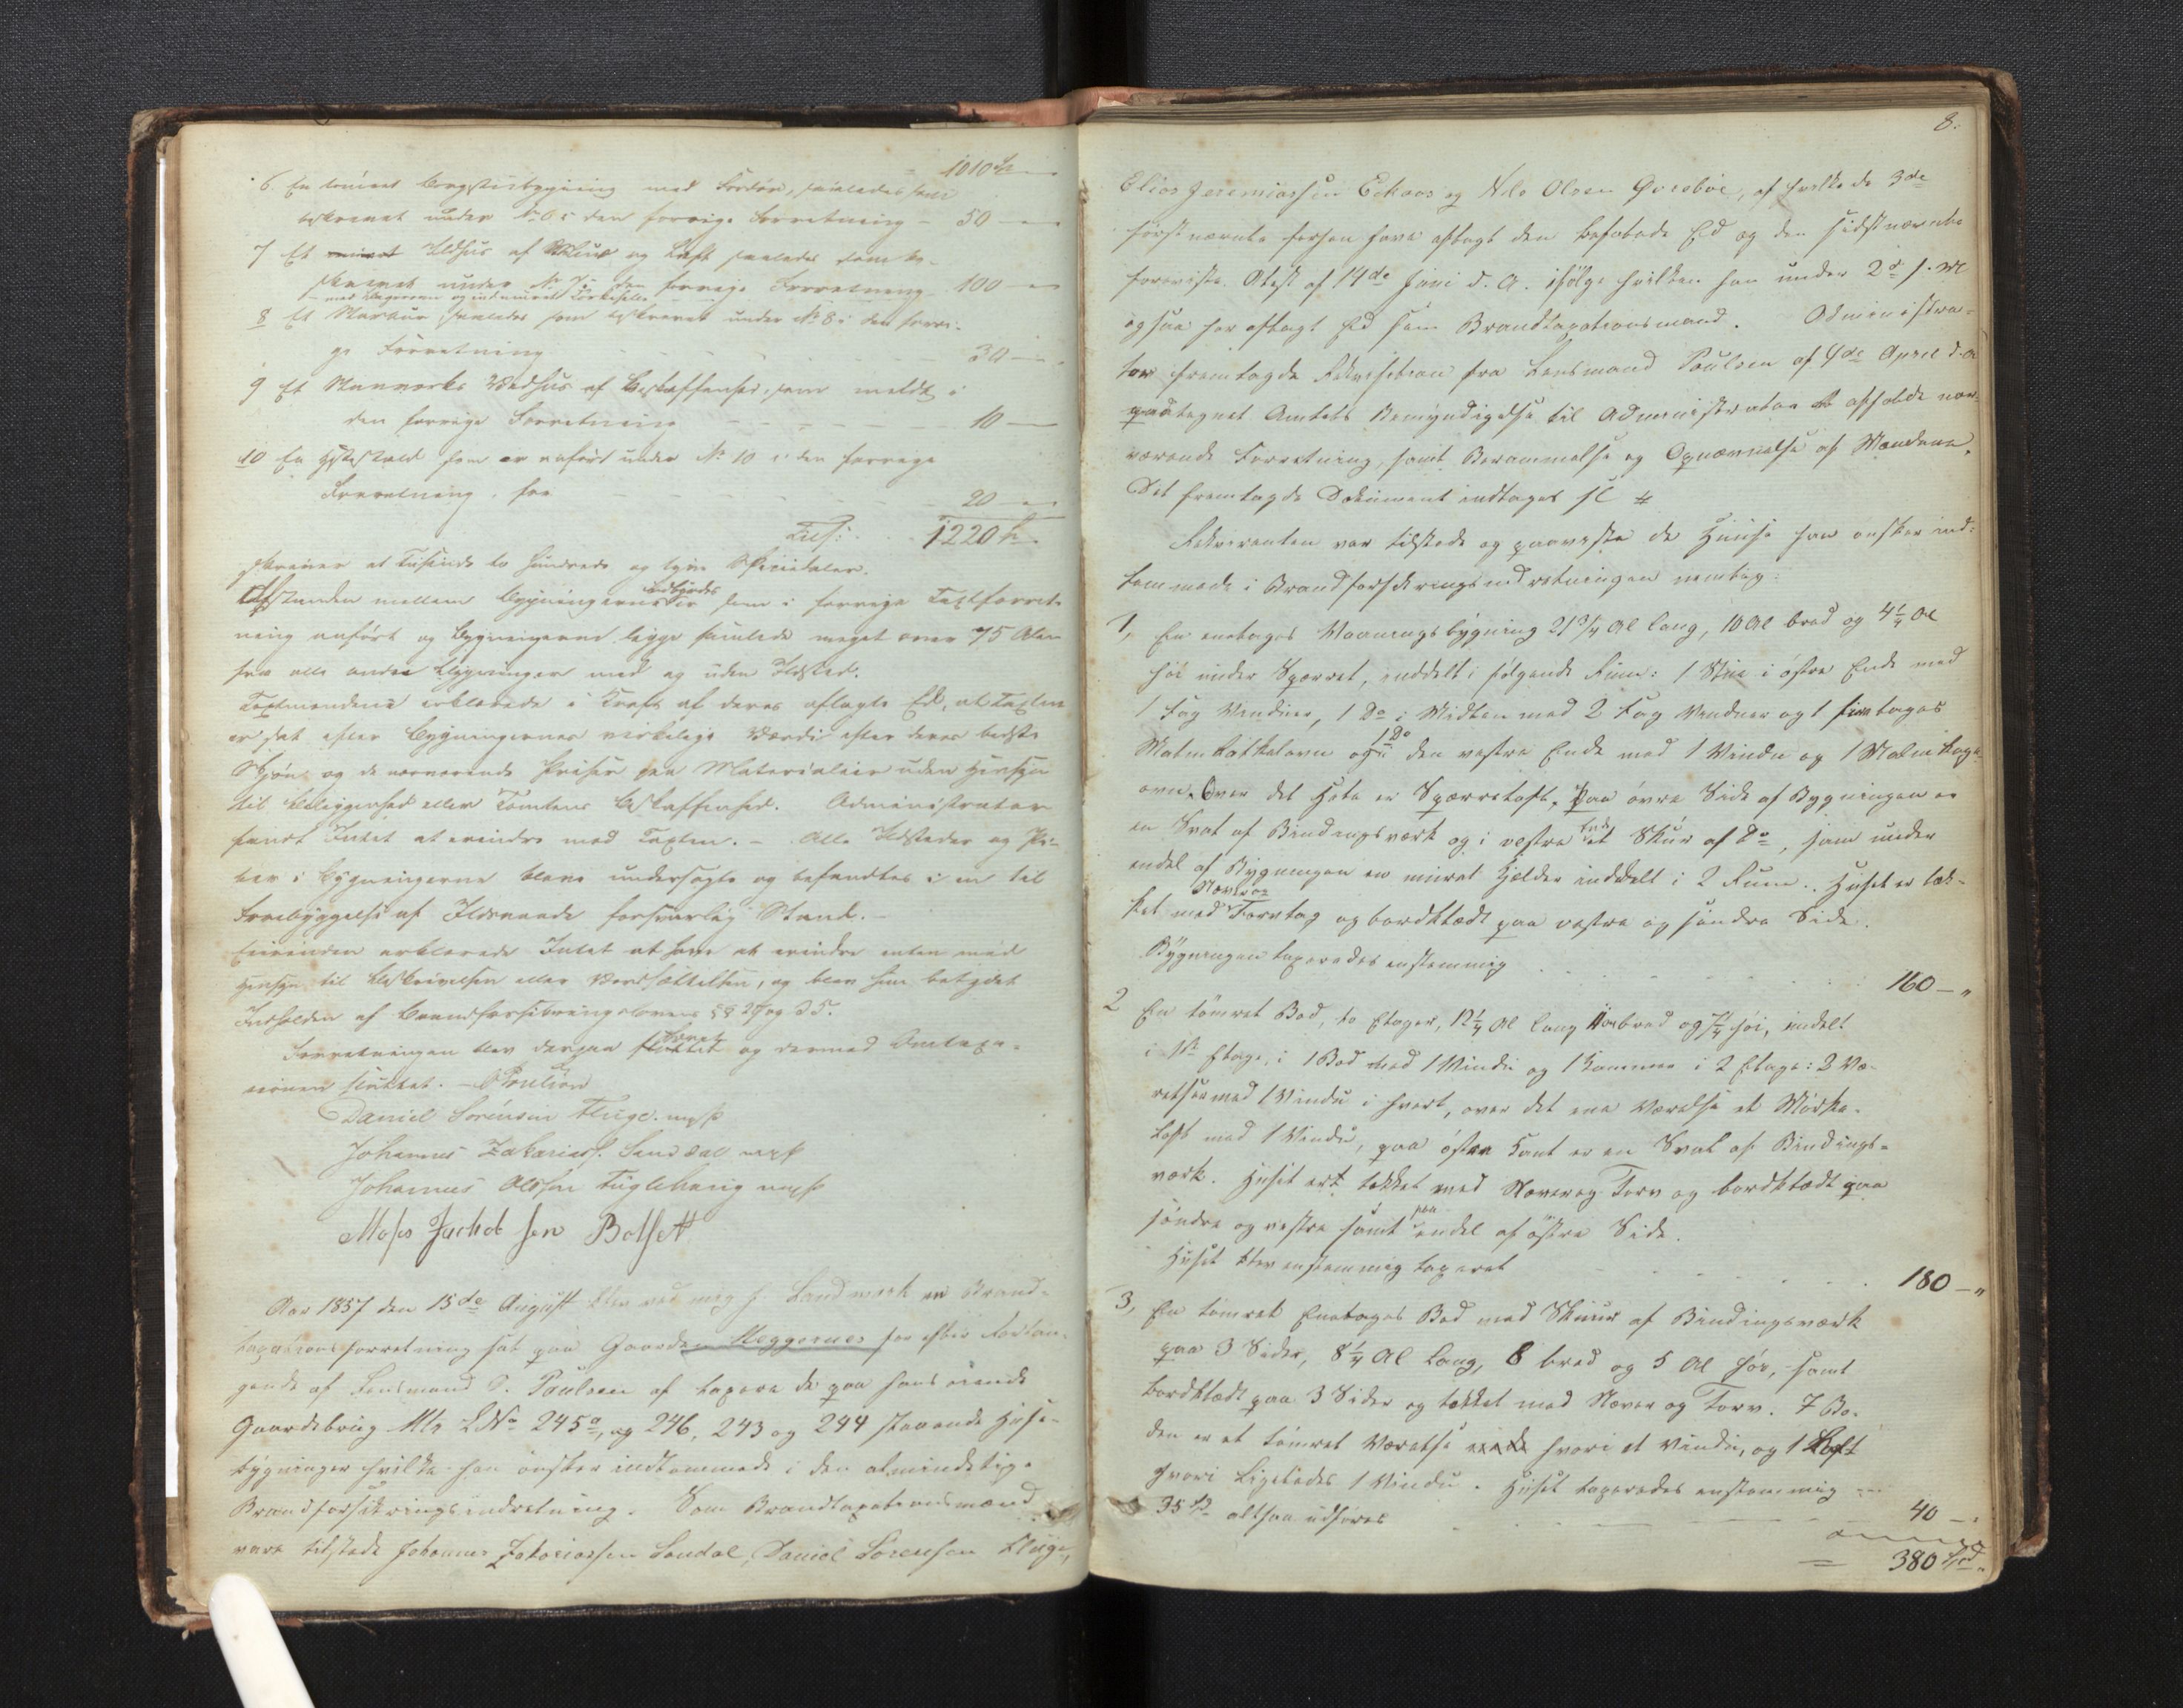 1010 Sp
6. En tømret Bergstuebygning med Fordør, saaledes som
beskrevet under No 6 i den forrige Forretning - 50 —
7 Et Ildhus af Skuur og Loft saaledes som be-
skrevet under No 7 i den forrige Forretning 100 —
med Bageroven
8 Et Stabuur saaledes som beskrevet under No 8 i den forri-
ge Forretning 30 —
9 Et Vedhus af Beskaffenhed, som meldt i
den forrige Forretning 10 —
10 En Hestestald som er anført under No 10 i den forrige
Forretning, for 20 —
Tils: 1220 Sp.
skriver et Tusinde to Hundrede og tyve Speciedaler.
Afstanden mellem Bygningerne indbyrdes er som i forrige Taxtforret-
ning anført og Bygningerne ligge saaledes meget over 75 Alen
fra alle andre Bygninger med og uden Ildsted.
Taxtmændene erklærede i Kraft af deres aflagte Ed, at Taxten
er sat efter Bygningernes virkelige Værdi efter deres bedste
Skjøn og de nærværende Priser paa Materialier uden Hensyn
til Beliggenhed eller Tomtens Beskaffenhed. Administrator
fandt Intet at erindre mod Taxten. - Alle Ildsteder og Pi-
ber i Bygningerne bleve undersøgte og befandtes i en til
Forebyggelse af Ildsvaade forsvarlig Stand. -
Eierinden erklærede Intet at have at erindre enten med
Hensyn til Beskrivelsen eller Værdsættelsen, og blev hun betydet
Indholden af Brandforsikringslovens §§ 27 og 35.
Forretningen blev derpaa sluttet og dermed Omtaxa-
tionen sluttet. - Poulson
Daniel Sørensen Fluge. m p P
Johannes Zakariass. Sandal m p P
Johannes Olssen Fuglehaug m p P
Moses Jachob sen Bolset
Aar 1857 den 15de August blev ved mig J. Landmark en Brand-
taxationsforretning sat paa Gaarden Meggernes her efter Forlan-
gende af Lensmand S. Poulsen af taxere de paa hans eiende
Gaardsbrug Mtr L No 245a, og 246, 243 og 244 staaende Huse-
bygninger hvilke han ønsker indtømmede i den almindelige
Brandforsikringsindretning. Som Brandtaxationsmænd
vare tilstede Johannes Zakariassen Sandal, Daniel Sørensen Fluge,
8.
Elias Jeremiassen Eckaas og Nils Olsen Øvrebøe, af hvilke de 3de
førstnævnte forhen have aflagt den befalede Ed og den sidstnævnte
foreviste Atest af 14de Juni d. A. ifølge hvilken han under 2d s. M
ogsaa har aflagt Ed som Brandtaxationsmand. Administra-
tor fremlagde Rekvisition fra Lensmand Poulsen af 4de April d. A.
paategnet Amtets Bemyndigelse til Administrator at afholde nær-
værende Forretning, samt Berammelse og Opnævnelse af Mændene.
Det fremlagde Dokument indtages sl #
Rekvirenten var tilstede og paaviste de Huuse han ønsker ind-
lemmede i Brandforsikringsindretningen nemlig:
1, En enetages Vaaningsbygning 21 3/4 Al lang, 10 Al bred og 4 1/4 Al
høi under Sperret, inddelt i følgende Rum: 1 Stue i østre Ende med
1 Fag Vinduer, 1 Do i Midten med 2 Fag Vinduer og 1 Etages
Malm Kakkelovn og 1 Do i den vestre Ende med 1 Vindu og 1 Malm Kage-
ovn. Over det Hele er Sperreloft. Paa øvre Side af Bygningen er
en Sval af Bindingsværk og i vestre Ende et Skur af Do, som under
endel af Bygningen en muret Kjælder inddelt i 2 Rum. Huset er tæk-
ket med Næver og Torvtag og bordklædt paa vestre og søndre Side.
Bygningen taxeredes enstemmig 160 - "
2 En tømret Bod, to Etager, 12 1/4 Al lang 11 Al bred og 7 1/4 høi, indelt
i 1ste Etage, i 1 Bod med 1 Vindu og 1 Kammer i 2 Etage: 2 Væ-
relser med 1 Vindu i hvert, over det ene Værelse et Mørke-
loft med 1 Vindu, paa østre Kant er en Sval af Bindings-
værk. Huset ert tækket med Næver og Torv og bordklædt paa
søndre og vestre samt paa endel af østre Side.
Huset blev enstemmig taxeret 180 - "
3, En tømret Enetages Bod med Skuur af Bindingsværk
paa 3 Sider, 8 1/4 Al lang, 8 bred og 5 Al høi, samt
bordklædt paa 3 Sider og tækket med Næver og Torv. I Bo-
den er et tømret Værelse hvori et Vindu, og 1 Loft
hvori Ligeledes 1 Vindu. Huset taxeredes enstemmig
35 Sp altsaa udføres 40 - "
= 380 Spd.